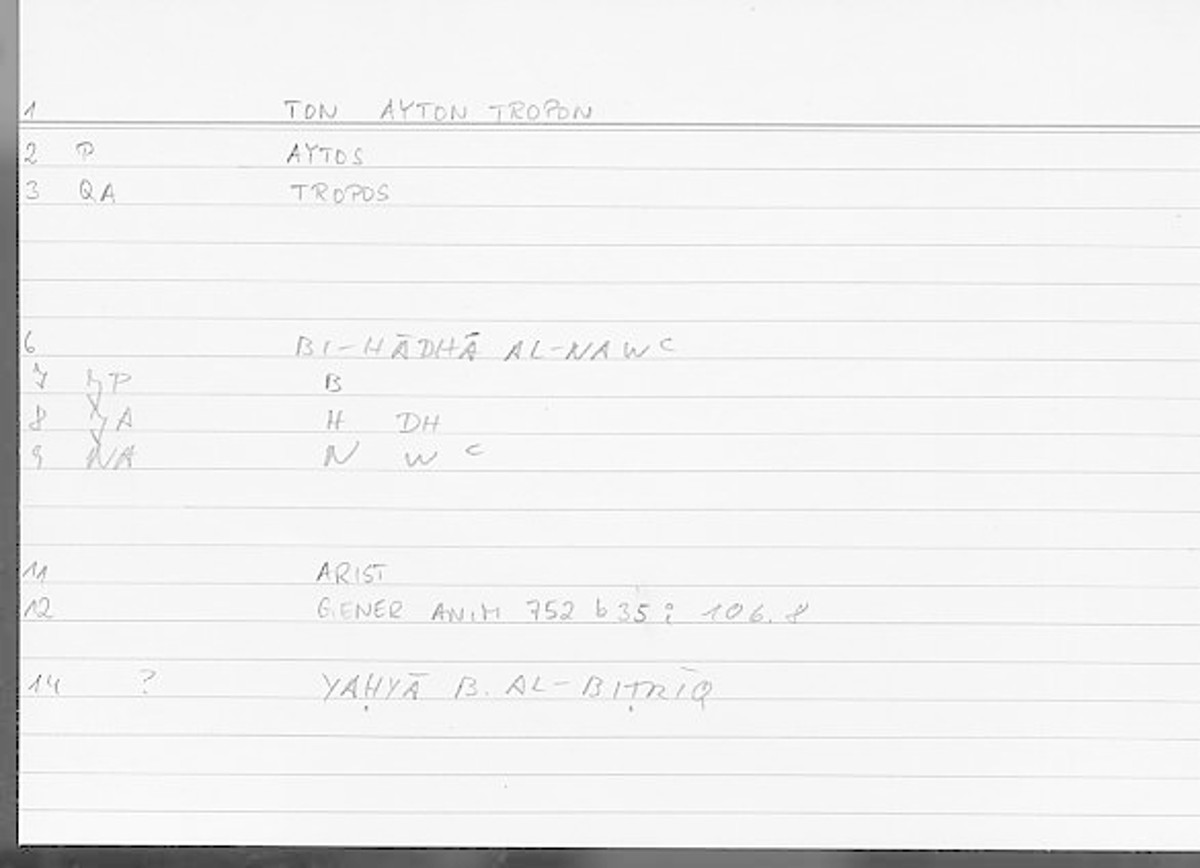 1 TON AYTON TROPON
2 P AYTOS
3 QA TROPOS
6 BI-HĀDHĀ AL-NAWC
7 P B
8 A H DH
9 NA N W C
11 ARIST
12 GENER ANIM 752 b 35; 106.8
14 ? YAḤYĀ B. AL-BIṬRĪQ